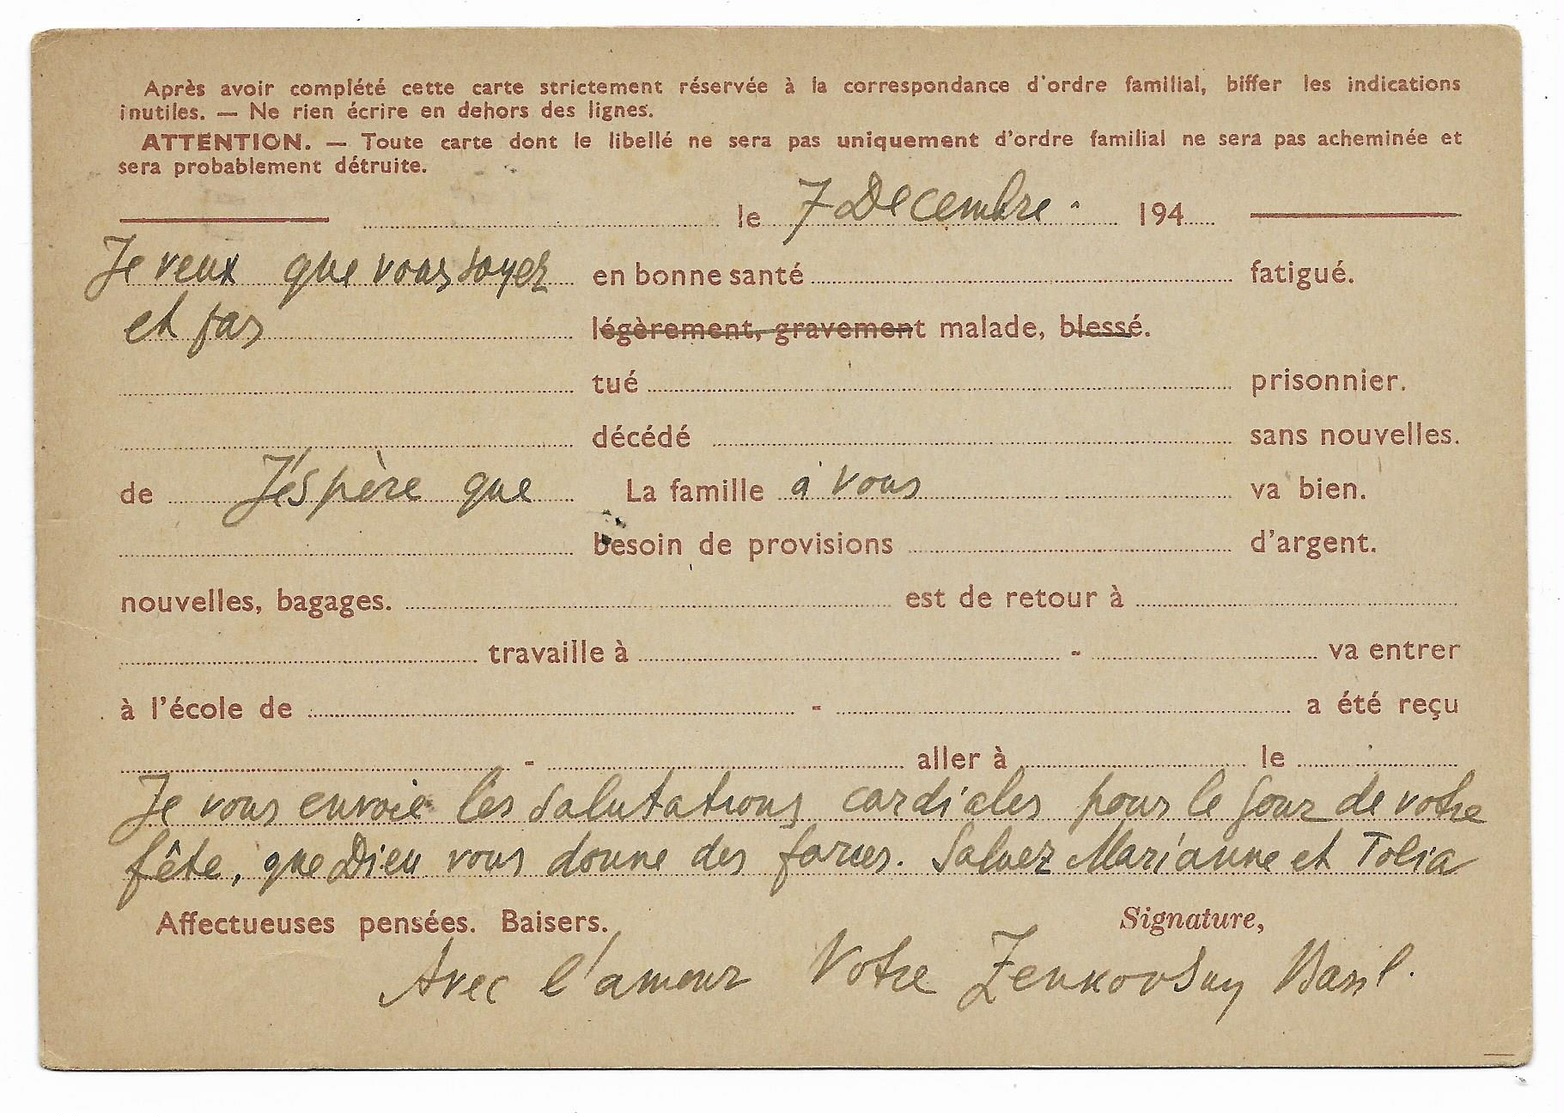 Après avoir complété cette carte strictement réservée à la correspondance d'ordre familial, biffer les indications
inutiles. — Ne rien écrire en dehors des lignes.
ATTENTION. — Toute carte dont le libellé ne sera pas uniquement d'ordre familial ne sera pas acheminée et
sera probablement détruite.
le 7 Decembre. 194
Je veux que vous soyez en bonne santé fatigué.
et pas légèrement, gravement malade, blessé.
tué prisonnier.
décédé sans nouvelles.
de J'éspère que La famille à vous va bien.
besoin de provisions d'argent.
nouvelles, bagages. est de retour à
travaille à - va entrer
à l'école de - a été reçu
- aller à le
Je vous envoie les salutations cordiales pour le jour de votre
fête, que Dieu vous donne des forces. Saluez Marianne et Tolia
Affectueuses pensées. Baisers. Signature,
Avec l'amour Votre Zenkovsky Basil.